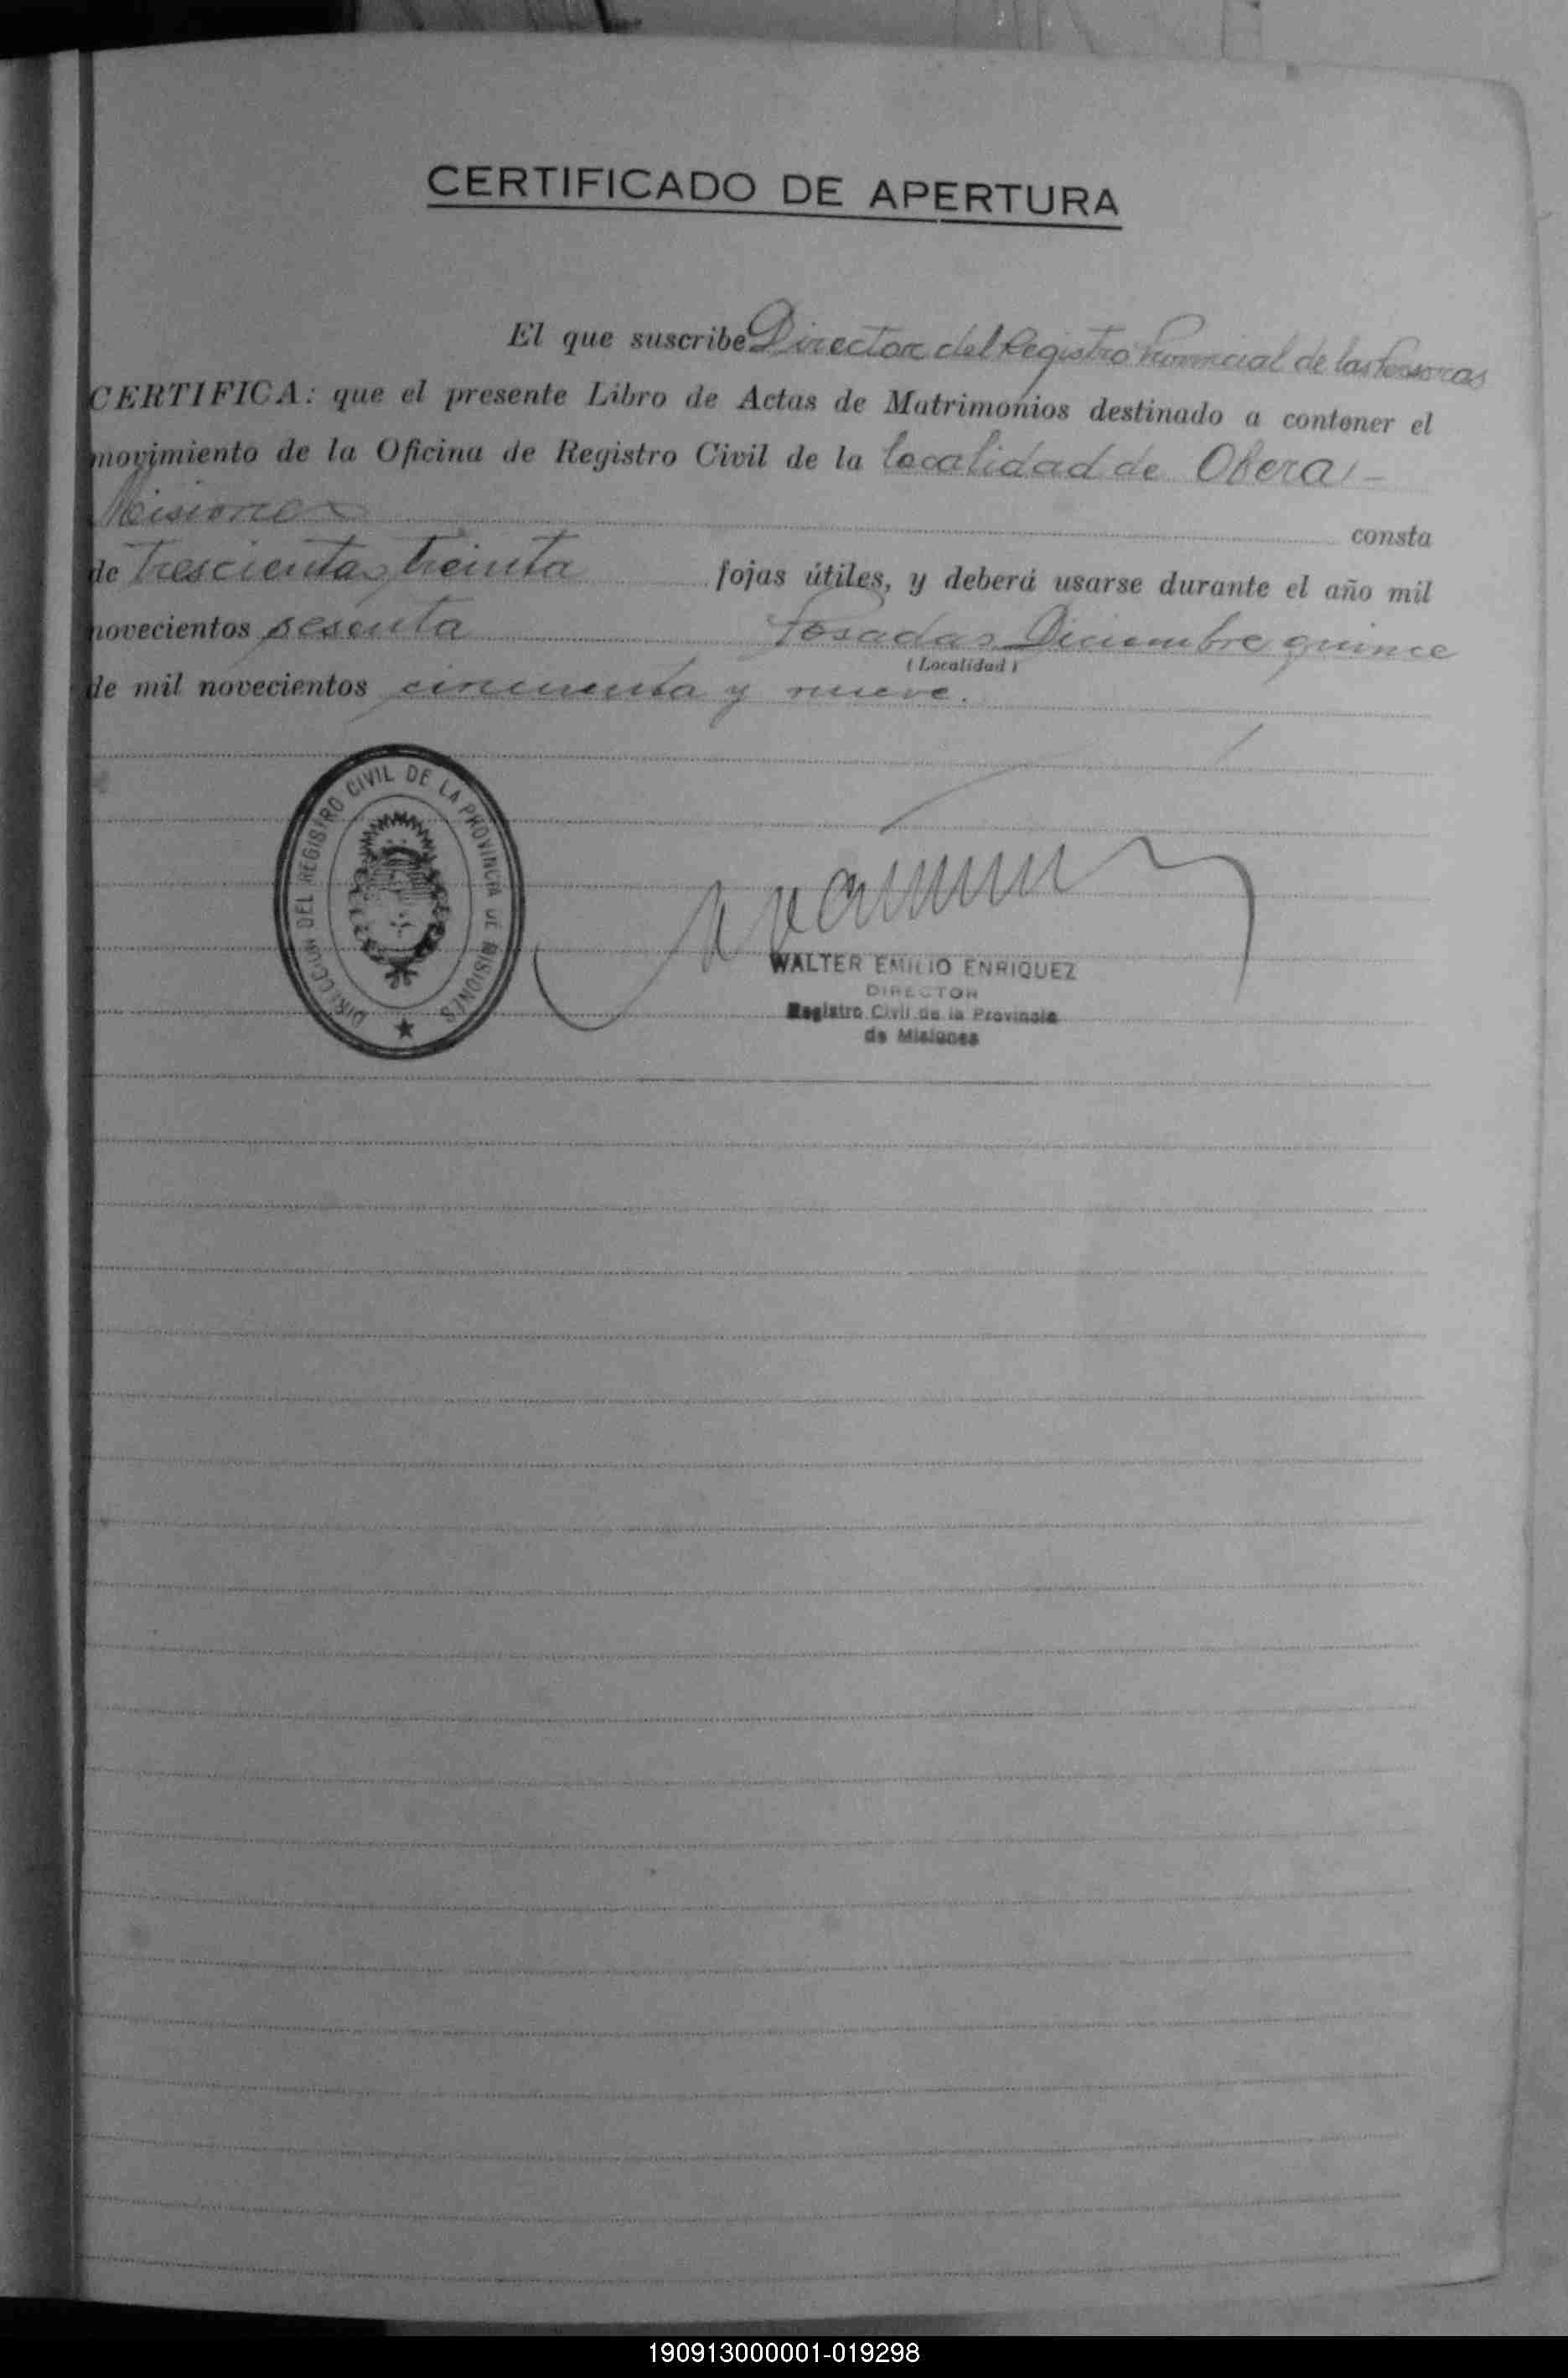 CERTIFICADO DE APERTURA
El que suscribe Director del Registro Provincial de las Personas
CERTIFICA: que el presente Libro de Actas de Matrimonios destinado a contener el
movimiento de la Oficina de Registro Civil de la localidad de Obera -
Misiones consta
de trescientas treinta fojas útiles, y deberá usarse durante el año mil
novecientos sesenta Posadas Diciembre quince
( Localidad )
de mil novecientos cincuenta y nueve.
DIRECCION DEL REGISTRO CIVIL DE LA PROVINCIA DE MISIONES
WALTER EMILIO ENRIQUEZ
DIRECTOR
Registro Civil de la Provincia
de Misiones
190913000001-019298